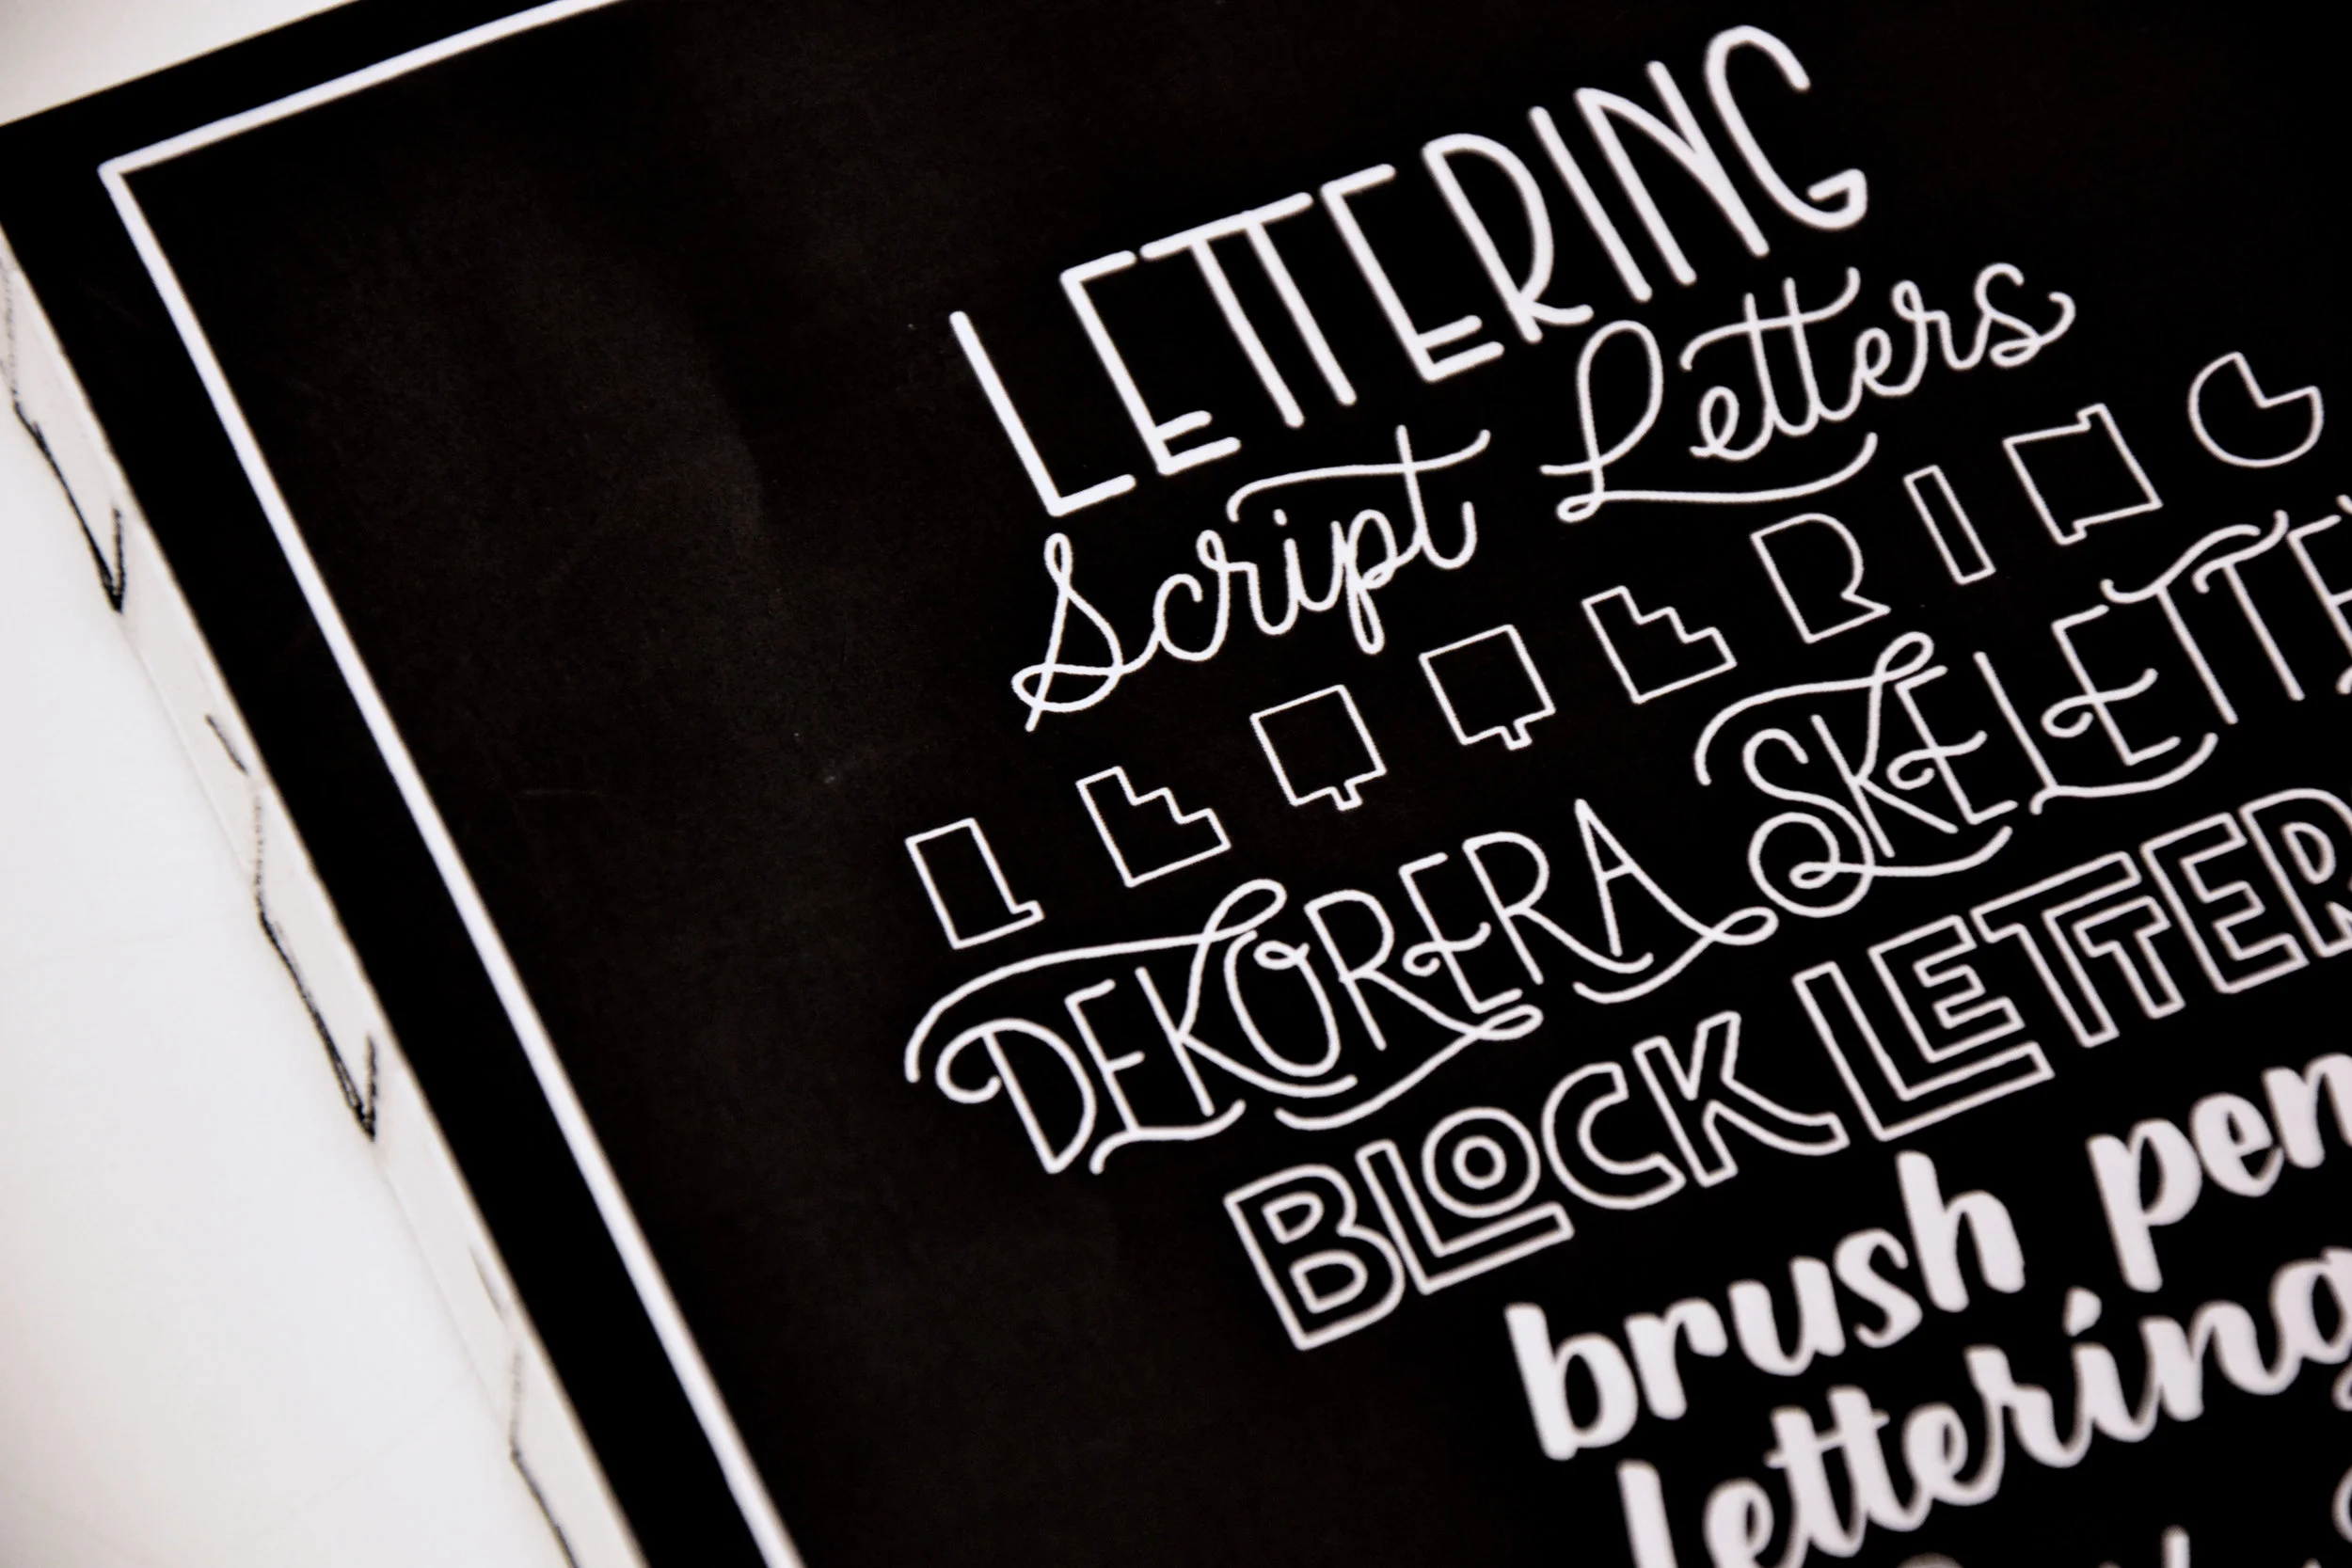 LETTERING
Script Letters
LETTERING
DEKORERA SKELETTE
BLOCK LETTER
brush pen
lettering